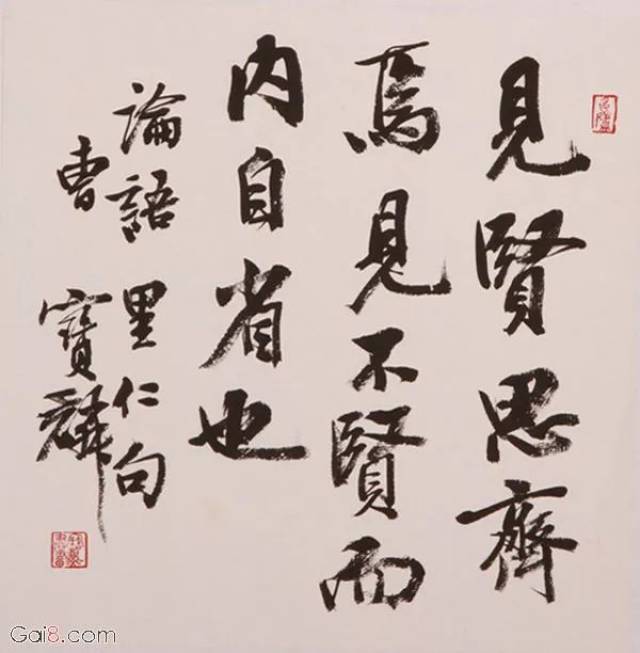 見賢思齊
焉見不賢而
内自省也
論語里仁句
曹寶麟
Gai8.com